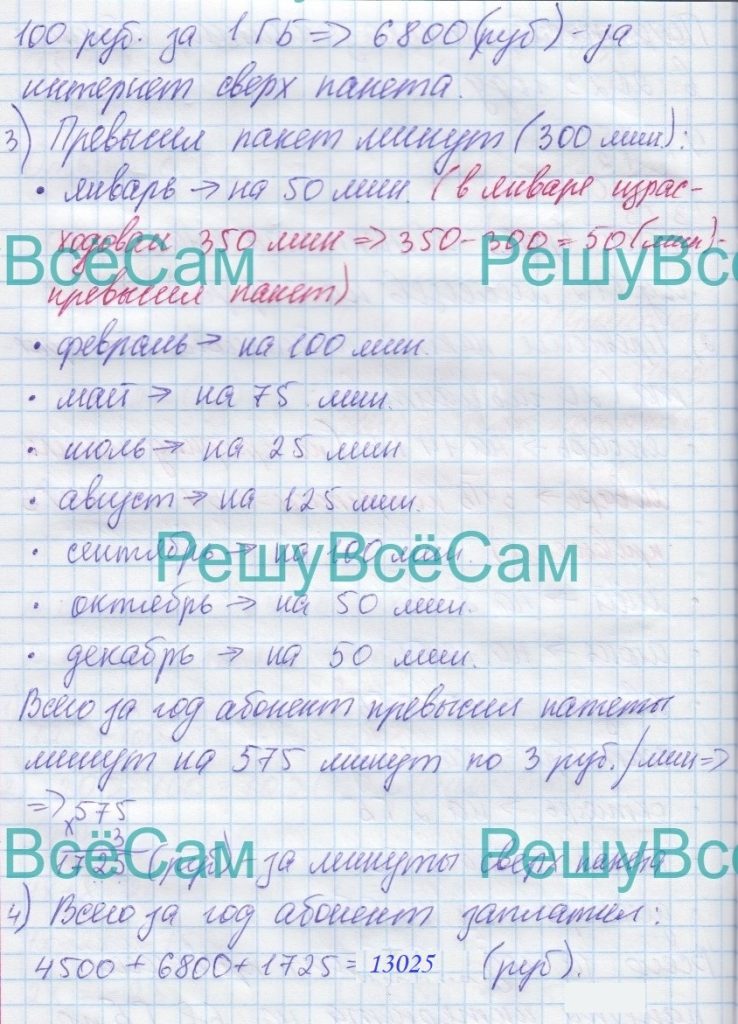 100 руб. за 1 ГБ => 6800 (руб) - за
интернет сверх пакета.
3) Превысил пакет минут (300 мин):
• январь → на 50 мин. (в январе израс-
ходовал 350 мин => 350 - 300 = 50 (мин) -
ВсёСам РешуВсё
превысил пакет)
• февраль → на 100 мин.
• май → на 75 мин.
• июль → на 25 мин
• август → на 125 мин.
• сентябрь → на 100 мин.
РешуВсёСам
• октябрь → на 50 мин.
• декабрь → на 50 мин.
Всего за год абонент превысил пакеты
минут на 575 минут по 3 руб./мин =>
=> 575
x 3
1725 (руб) - за минуты сверх пакета
ВсёСам РешуВсё
4) Всего за год абонент заплатил:
4500 + 6800 + 1725 = 13025 (руб).